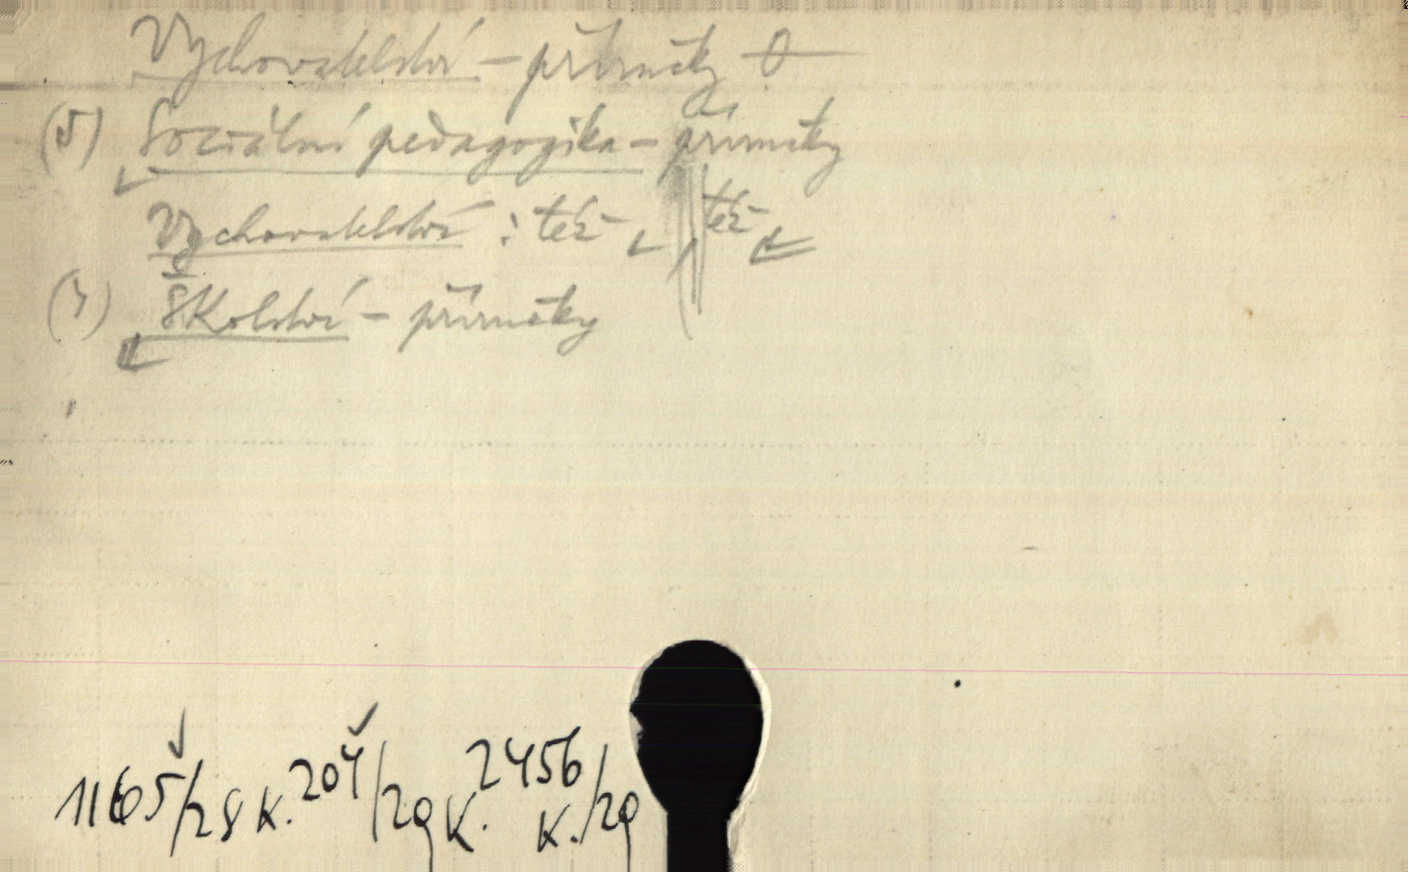 Vychovatelství – příručky
(5) Sociální pedagogika – příručky
Vychovatelství : též též
Školství – příručky
11605/28 K. 204/29 K. 2456/29 K.